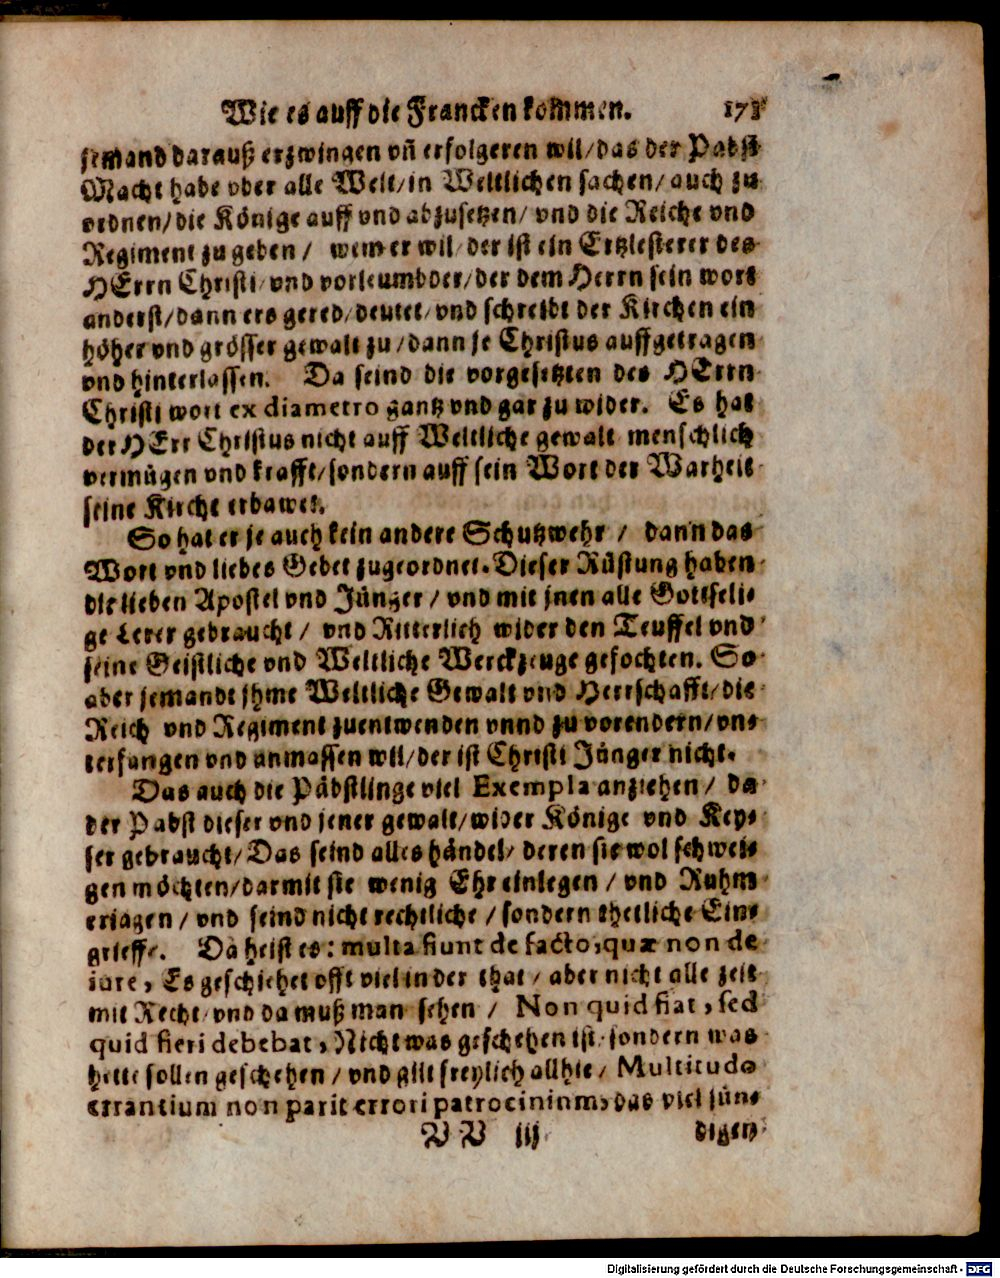 Wie es auff die Francken kommen. 173
jemand darauß erzwingen vñ erfolgeren wil/das der Pabst
Macht habe vber alle Welt/in Weltlichen sachen/auch zu
ordnen/die Könige auff vnd abzusetzen/vnd die Reiche vnd
Regiment zu geben/ wem er wil/der ist ein Ertzlesterer des
HErrn Christi/vnd vorleumbder/der dem Herrn sein wort
anderst/dann ers gered/deutet/vnd schreibt der Kirchen ein
höher vnd grösser gewalt zu/dann je Christus auffgetragen
vnd hinterlassen. Da seind die vorgesetzten des HErrn
Christi wort ex diametro gantz vnd gar zu wider. Es hat
der HErr Christus nicht auff Weltliche gewalt menschlich
vermügen vnd krafft/sondern auff sein Wort der Warheit
seine Kirche erbawet.
So hat er je auch kein andere Schutzwehr/ dann das
Wort vnd liebes Gebet zugeordnet. Dieser Rüstung haben
die lieben Apostel vnd Jünger/vnd mit jnen alle Gottseli-
ge Lerer gebraucht/ vnd Ritterlich wider den Teuffel vnd
seine Geistliche vnd Weltliche Werckzeuge gefochten. So
aber jemandt jhme Weltliche Gewalt vnd Herrschafft/die
Reich vnd Regiment zuentwenden vnnd zu vorendern/vn-
terfangen vnd anmassen wil/der ist Christi Jünger nicht.
Das auch die Päbstlinge viel Exempla anziehen/ da
der Pabst dieser vnd jener gewalt/wider Könige vnd Key-
ser gebraucht/Das seind alles händel/deren sie wol schwei-
gen möchten/darmit sie wenig Ehr einlegen/vnd Ruhm
eriagen/vnd seind nicht rechtliche/sondern thetliche Ein-
grieffe. Da heist es: multa fiunt de facto, quæ non de
iure, Es geschiehet offt viel in der that/aber nicht alle zeit
mit Recht/vnd da muß man sehen/ Non quid fiat, sed
quid fieri debebat, Nicht was geschehen ist/sondern was
hette sollen geschehen/vnd gilt freylich allhie/Multitudo
errantium non parit errori patrocinium, das viel sün-
VV iij digen
Digitalisierung gefördert durch die Deutsche Forschungsgemeinschaft - DFG